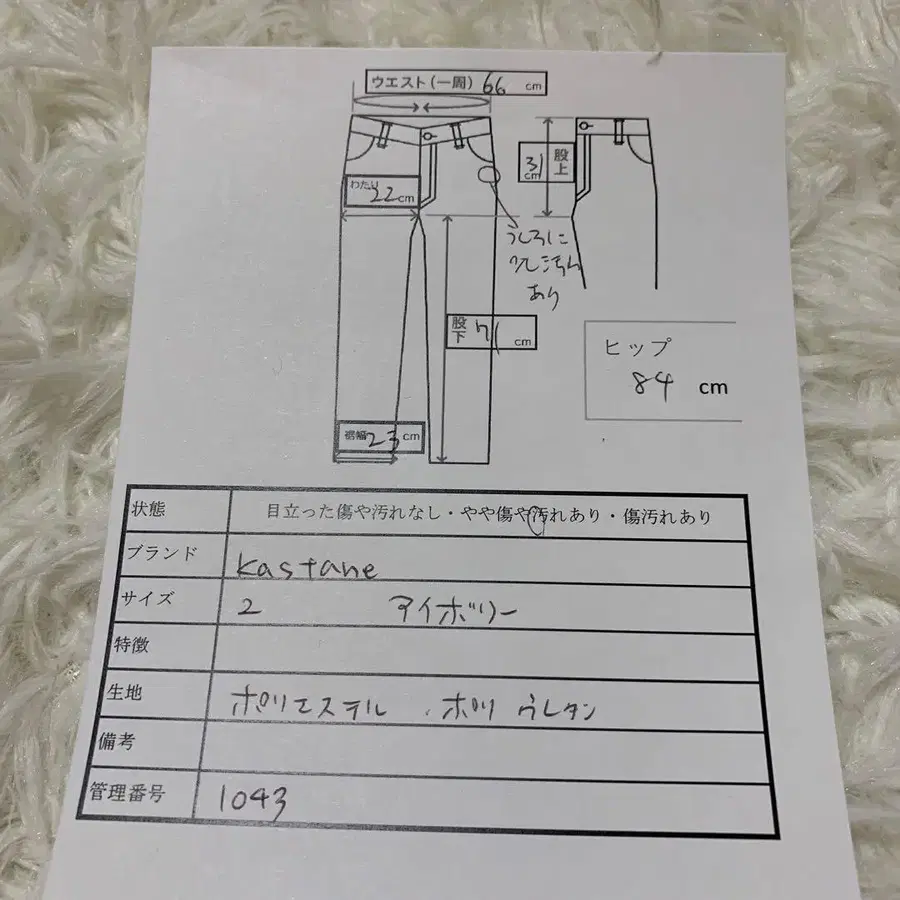 ウエスト(一周) 66 cm
31 cm 股上
わたり 22cm
うしろに
少し汚れ
あり
股下 71 cm
ヒップ
84 cm
裾幅 23 cm
状態 目立った傷や汚れなし・やや傷や汚れあり・傷汚れあり
ブランド kastane
サイズ 2 アイボリー
特徴
生地 ポリエステル . ポリ ウレタン
備考
管理番号 1043